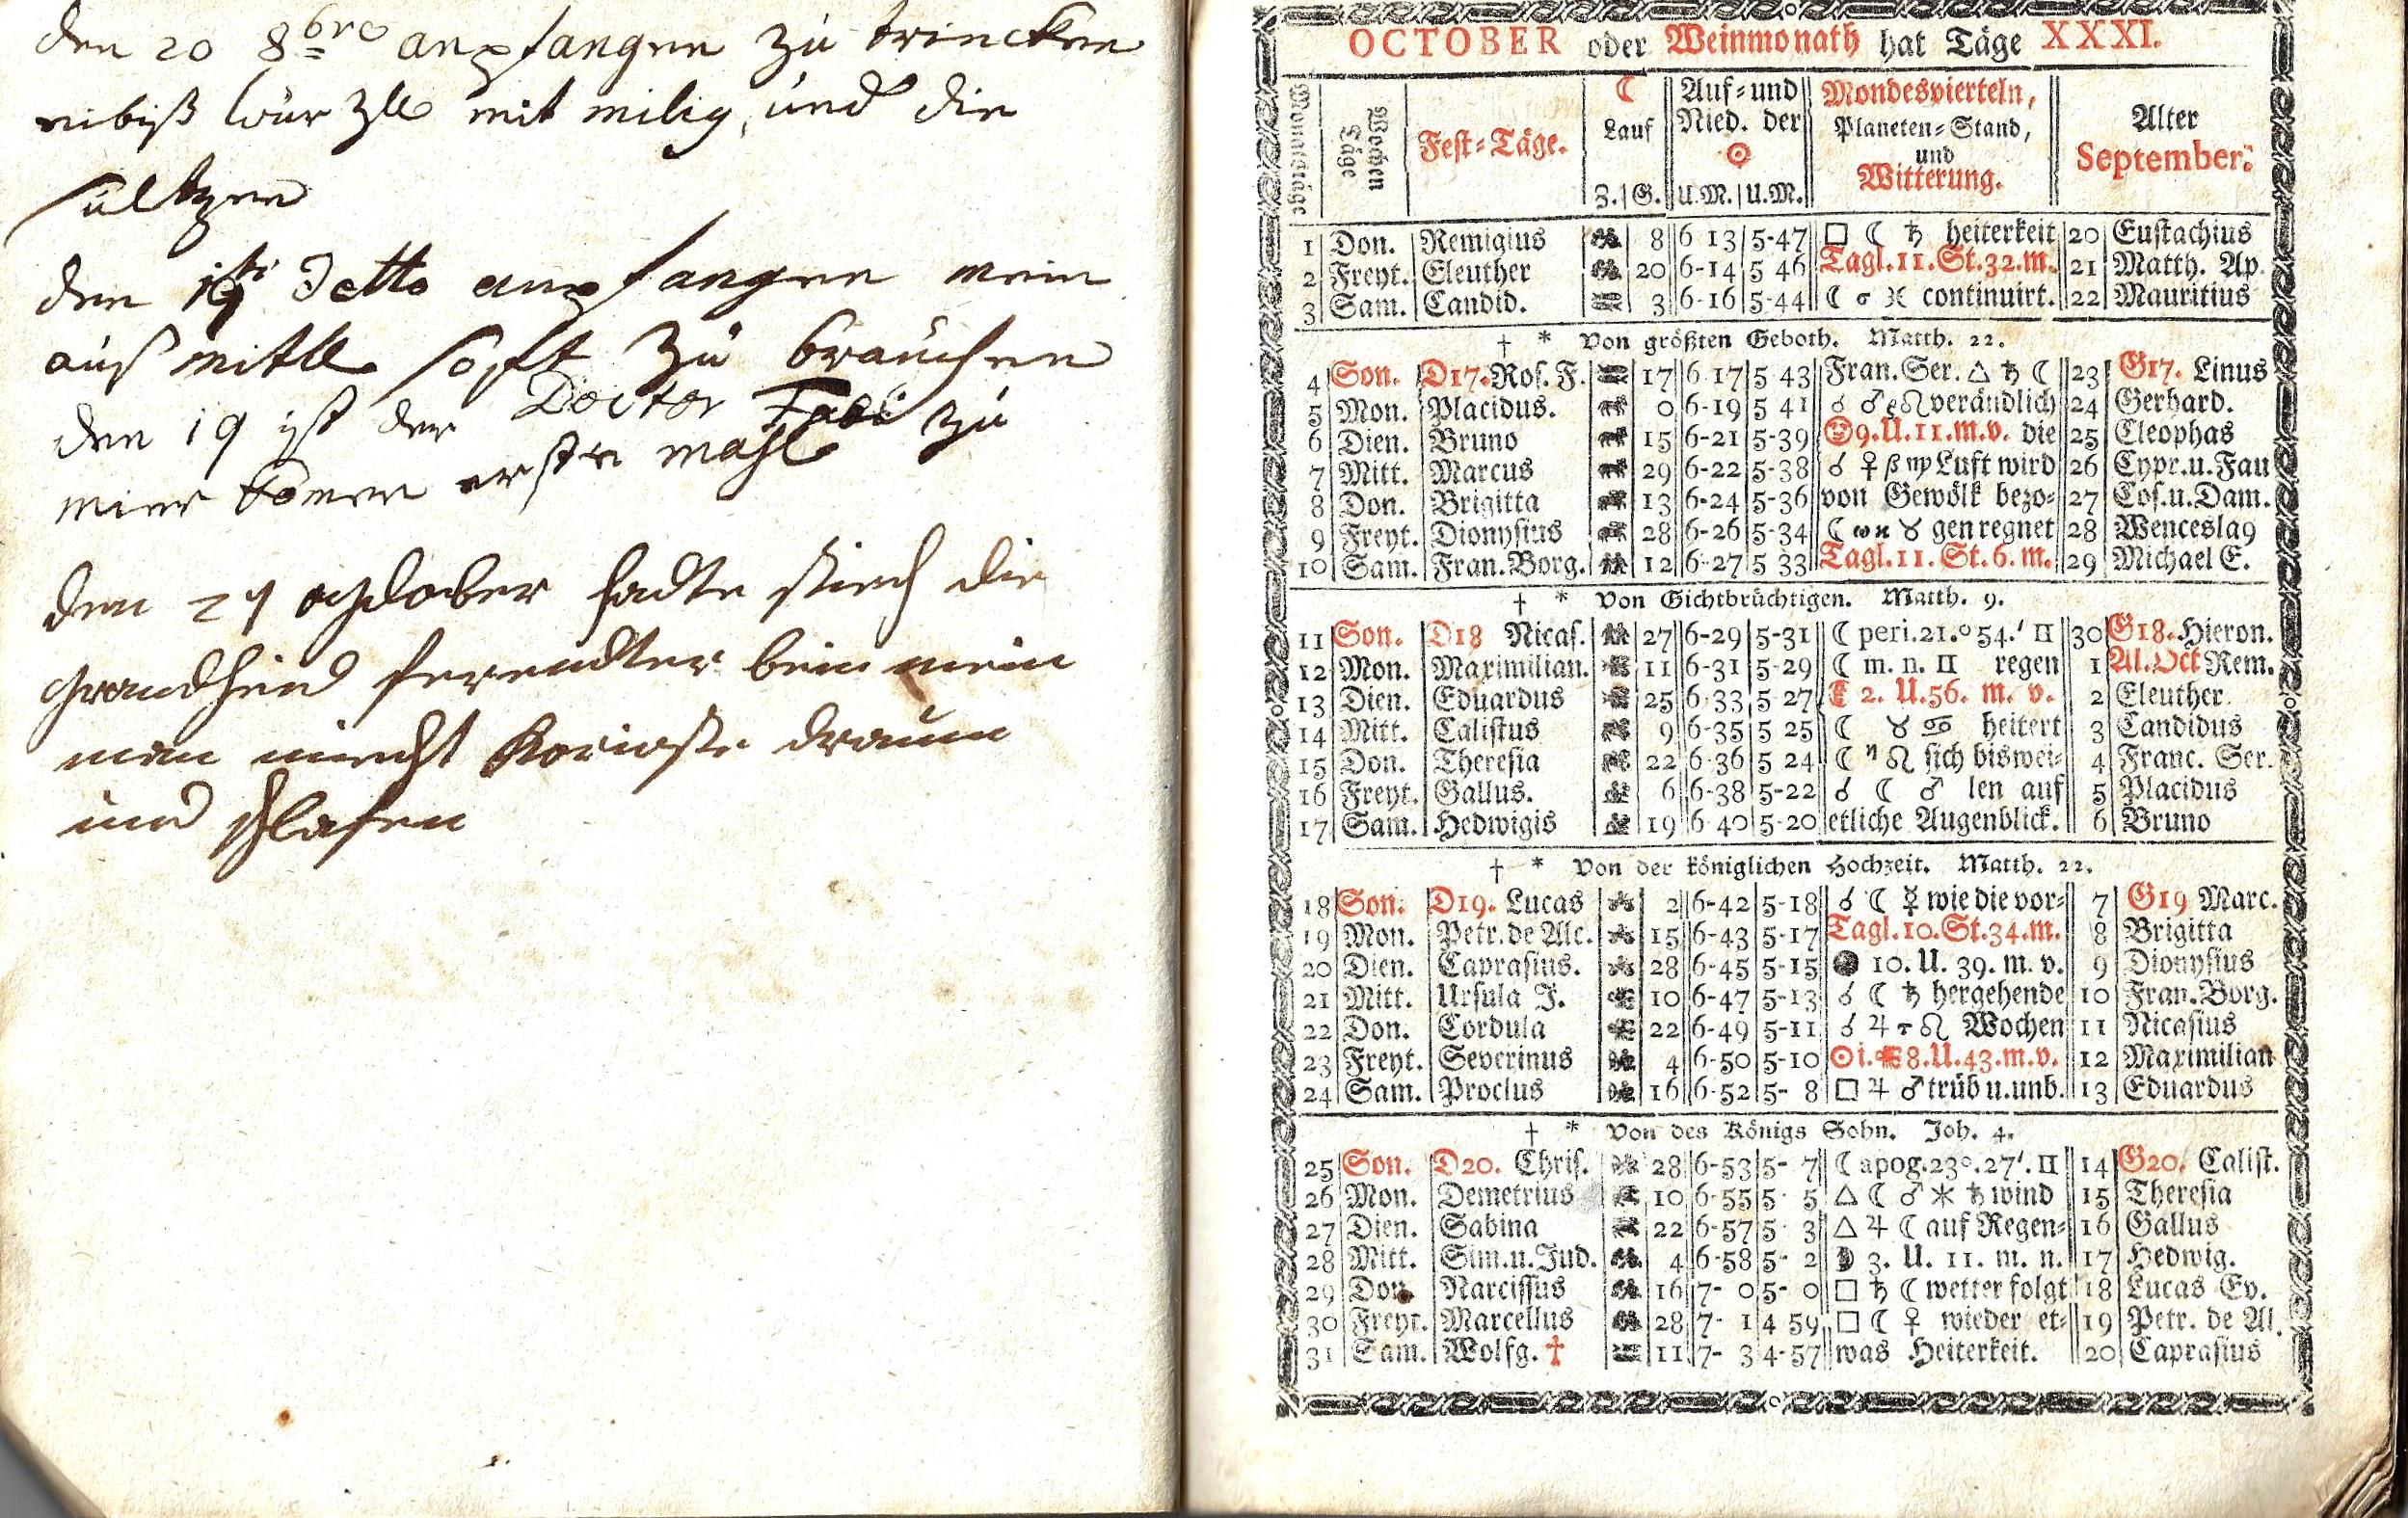 den 20 8bre angefangen zu trincken
eibiß wurzll mit milig, und die
sultzen
den 19ti detto angefangen mein
auß mittll safft zu brauchen
den 19 ist der Doctor zu
mier komen erste mahl
den 29 hadte sich die
bein mein
man nicht
und schlafen
OCTOBER oder Weinmonath hat Täge XXXI.
Monatstäge | Wochen Täge | Fest-Täge. | ☾ Lauf Z. G. | Auf- und Nied. der ☉ U.M. U.M. | Mondesvierteln, Planeten-Stand, und Witterung. | Alter September.
1 Don. Remigius 8 6 13 5-47 □ ☾ ♄ heiterkeit 20 Eustachius
2 Freyt. Eleuther 20 6-14 5 46 Tagl. 11. St. 32. m. 21 Matth. Ap.
3 Sam. Candid. 3 6-16 5-44 ☾ σ ♓ continuirt. 22 Mauritius
† * Von größten Geboth. Matth. 22.
4 Son. D17. Ros. F. 17 6 17 5 43 Fran. Ser. △ ♄ ☾ 23 G17. Linus
5 Mon. Placidus. 0 6-19 5 41 ☌ ♂ ρ ♌ verändlich 24 Gerhard.
6 Dien. Bruno 15 6-21 5-39 9. U. 11. m. v. die 25 Cleophas
7 Mitt. Marcus 29 6-22 5-38 ☌ ♀ β ♍ Luft wird 26 Cypr. u. Jau
8 Don. Brigitta 13 6-24 5-36 von Gewölk bezo- 27 Cos. u. Dam.
9 Freyt. Dionysius 28 6-26 5-34 ☾ ω ϰ ♉ gen regnet 28 Wenceslaꝰ
10 Sam. Fran. Borg. 12 6-27 5 33 Tagl. 11. St. 6. m. 29 Michael E.
† * Von Gichtbrüchtigen. Matth. 9.
11 Son. D18 Nicas. 27 6-29 5-31 ☾ peri. 21.° 54.' ♊ 30 G18. Hieron.
12 Mon. Maximilian. 11 6-31 5-29 ☾ m. n. ♊ regen 1 Al. Oct Rem.
13 Dien. Eduardus 25 6-33 5 27 2. U. 56. m. v. 2 Eleuther
14 Mitt. Calistus 9 6-35 5 25 ☾ ♉ ♋ heitert 3 Candidus
15 Don. Theresia 22 6-36 5 24 ☾ η ♌ sich biswei- 4 Franc. Ser.
16 Freyt. Gallus. 6 6-38 5-22 ☌ ☾ ♂ len auf 5 Placidus
17 Sam. Hedwigis 19 6 40 5-20 etliche Augenblick. 6 Bruno
† * Von der königlichen Hochzeit. Matth. 22.
18 Son. D19. Lucas 2 6-42 5-18 ☌ ☾ ☿ wie die vor- 7 G19 Marc.
19 Mon. Petr. de Alc. 15 6-43 5-17 Tagl. 10. St. 34. m. 8 Brigitta
20 Dien. Caprasius. 28 6-45 5-15 ● 10. U. 39. m. v. 9 Dionysius
21 Mitt. Ursula J. 10 6-47 5-13 ☌ ☾ ♄ hergehende 10 Fran. Borg.
22 Don. Cordula 22 6-49 5-11 ☌ ♃ τ ♌ Wochen 11 Nicasius
23 Freyt. Severinus 4 6-50 5-10 ☉ i. 8. U. 43. m. v. 12 Maximilian
24 Sam. Proclus 16 6-52 5- 8 □ ♃ ♂ trüb u. unb. 13 Eduardus
† * Von des Königs Sohn. Joh. 4.
25 Son. D20. Chris. 28 6-53 5- 7 ☾ apog. 23°. 27'. ♊ 14 G20. Calist.
26 Mon. Demetrius 10 6-55 5 5 △ ☾ ♂ ⚹ ♄ wind 15 Theresia
27 Dien. Sabina 22 6-57 5 3 △ ♃ ☾ auf Regen- 16 Gallus
28 Mitt. Sim. u. Jud. 4 6-58 5- 2 ☽ 3. U. 11. m. n. 17 Hedwig.
29 Don. Narcissus 16 7- 0 5- 0 □ ♄ ☾ wetter folgt 18 Lucas Ev.
30 Freyt. Marcellus 28 7- 1 4 59 □ ☾ ♀ wieder et- 19 Petr. de Al.
31 Sam. Wolfg. † 11 7- 3 4-57 was Heiterkeit. 20 Caprasius